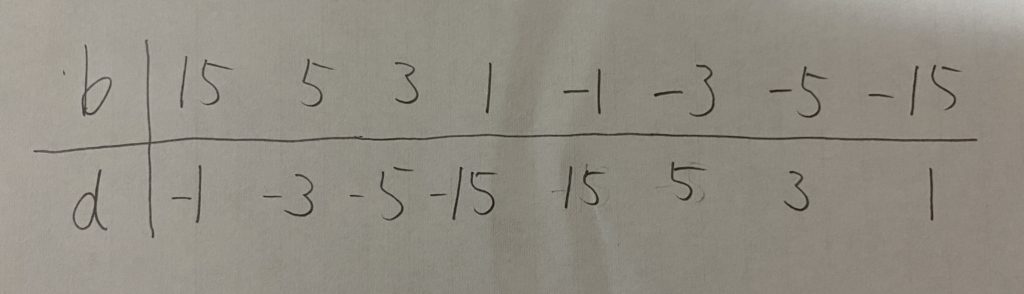 b 15 5 3 1 -1 -3 -5 -15
d -1 -3 -5 -15 15 5 3 1